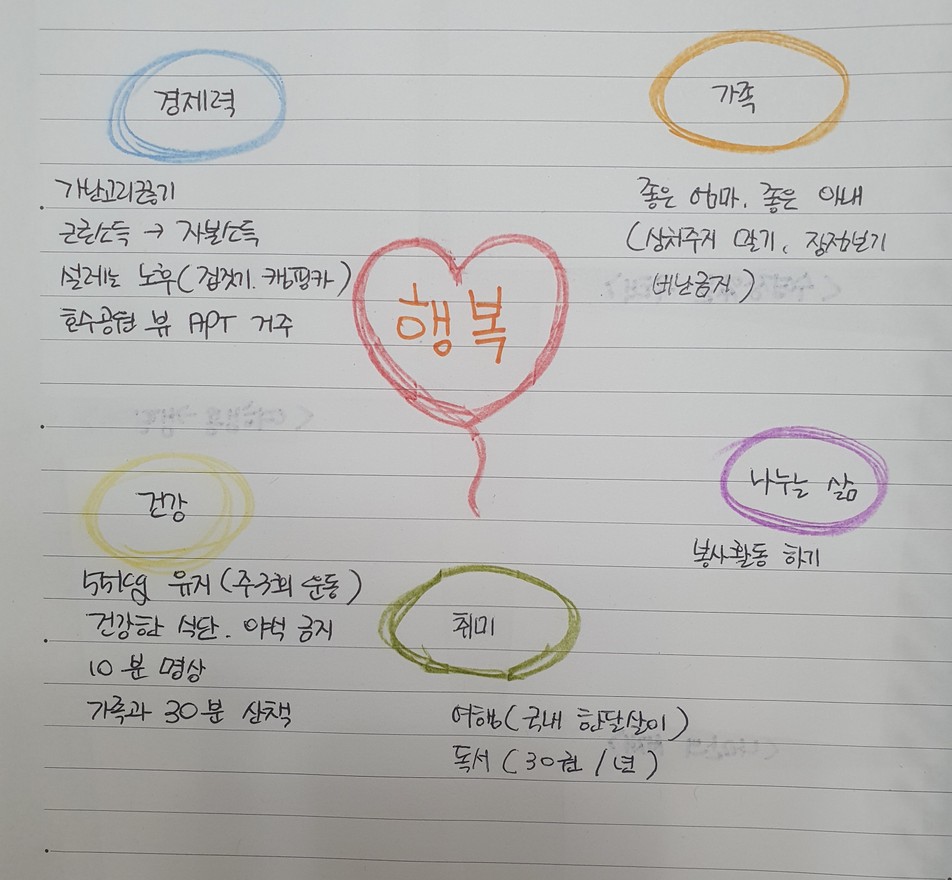 경제력
가난고리끊기
근로소득 → 자본소득
설레는 노후(접젓기. 캠핑카)
호수공원 뷰 APT 거주
가족
좋은 엄마, 좋은 아내
(상처주지 말기, 장점보기
비난금지)
행복
건강
55kg 유지(주3회 운동)
건강한 식단. 야식 금지
10분 명상
가족과 30분 산책
나누는 삶
봉사활동 하기
취미
여행(국내 한달살이)
독서(30권/년)